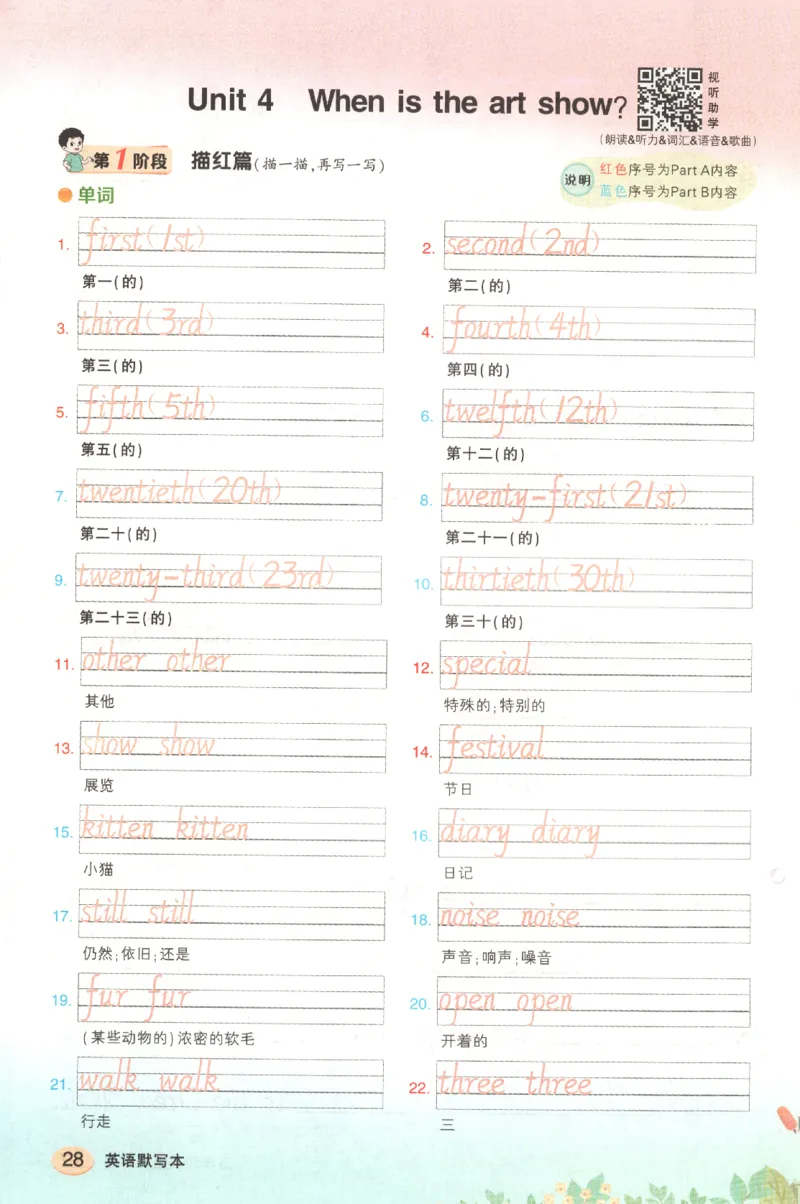 Unit 4 When is the art show?
视听助学
(朗读&听力&词汇&语音&歌曲)
第1阶段 描红篇(描一描,再写一写)
说明 红色序号为Part A内容
蓝色序号为Part B内容
单词
1. first(1st)
第一(的)
2. second(2nd)
第二(的)
3. third(3rd)
第三(的)
4. fourth(4th)
第四(的)
5. fifth(5th)
第五(的)
6. twelfth(12th)
第十二(的)
7. twentieth(20th)
第二十(的)
8. twenty-first(21st)
第二十一(的)
9. twenty-third(23rd)
第二十三(的)
10. thirtieth(30th)
第三十(的)
11. other other
其他
12. special
特殊的;特别的
13. show show
展览
14. festival
节日
15. kitten kitten
小猫
16. diary diary
日记
17. still still
仍然;依旧;还是
18. noise noise
声音;响声;噪音
19. fur fur
(某些动物的)浓密的软毛
20. open open
开着的
21. walk walk
行走
22. three three
三
28 英语默写本